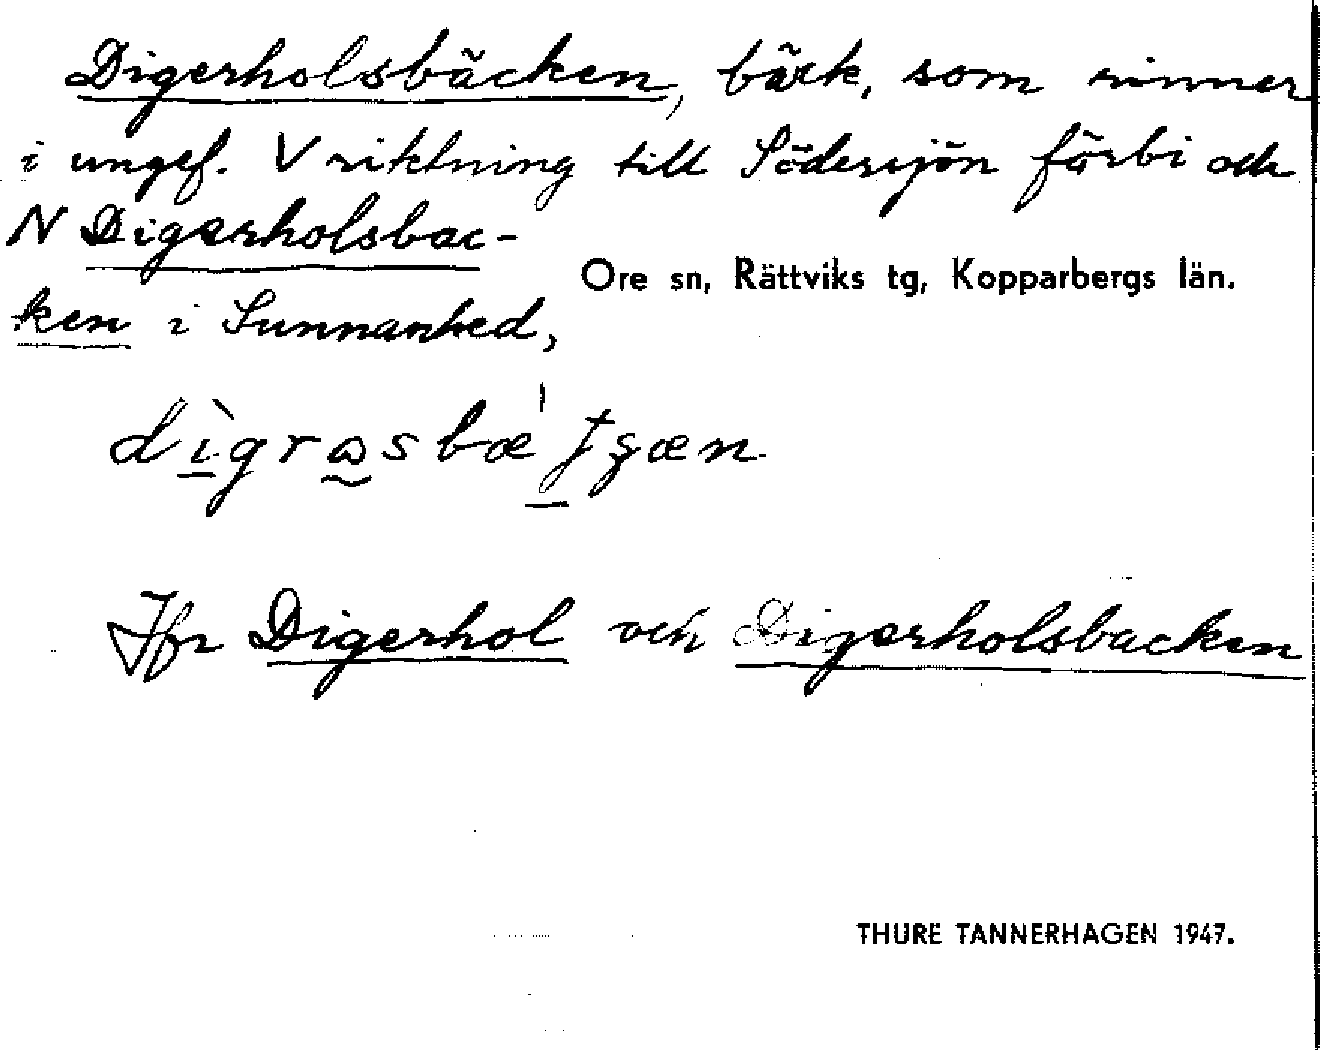 Digerholsbäcken, bäck, som rinner
i ungef. V riktning till Södersjön förbi och
N Digerholsbac-
Ore sn, Rättviks tg, Kopparbergs län.
ken i Sunnanhed,
Jfr Digerhol och Digerholsbacken
THURE TANNERHAGEN 1947.